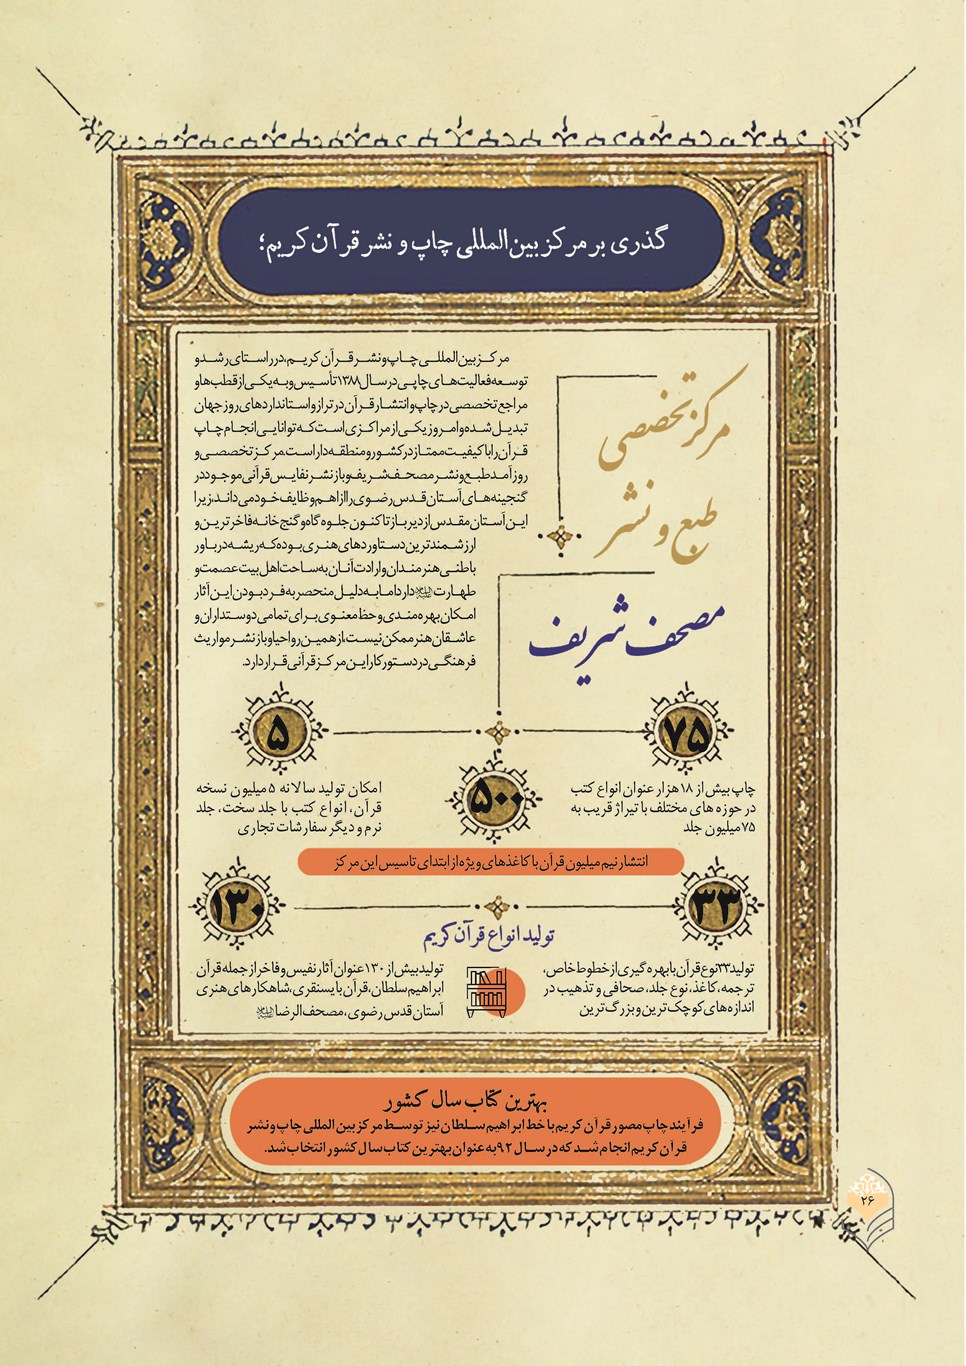 گذری بر مرکز بین‌المللی چاپ و نشر قرآن کریم؛
مرکز تخصصی
طبع و نشر
مصحف شریف
مرکز بین‌المللی چاپ و نشر قرآن کریم، در راستای رشد و
توسعه فعالیت‌های چاپی در سال ۱۳۸۸ تأسیس و به یکی از قطب‌ها و
مراجع تخصصی در چاپ و انتشار قرآن در تراز و استانداردهای روز جهان
تبدیل شده و امروز یکی از مراکزی است که توانایی انجام چاپ
قرآن را با کیفیت ممتاز در کشور و منطقه دارد است. مرکز تخصصی و
روزآمد طبع و نشر مصحف شریف و بازنشر نفایس قرآنی موجود در
گنجینه‌های آستان قدس رضوی را از اهم وظایف خود می‌داند، زیرا
این آستان مقدس از دیرباز تاکنون جلوه‌گاه و گنج‌خانه فاخرترین و
ارزشمندترین دستاوردهای هنری بوده که ریشه در باور
باطنی هنرمندان و ارادت آنان به ساحت اهل بیت عصمت و
طهارت دارد اما به دلیل منحصر به فرد بودن این آثار
امکان بهره‌مندی و حظ معنوی برای تمامی دوستداران و
عاشقان هنر ممکن نیست، از همین رو احیا و بازنشر مواریث
فرهنگی در دستور کار این مرکز قرآنی قرار دارد.
۷۵
چاپ بیش از ۱۸ هزار عنوان انواع کتب
در حوزه های مختلف با تیراژ قریب به
۷۵ میلیون جلد
۵
امکان تولید سالانه ۵ میلیون نسخه
قرآن، انواع کتب با جلد سخت، جلد
نرم و دیگر سفارشات تجاری
۵۰۰
انتشار نیم میلیون قرآن با کاغذهای ویژه از ابتدای تاسیس این مرکز
۳۳
۱۳۰
تولید انواع قرآن کریم
تولید ۳۳ نوع قرآن با بهره گیری از خطوط خاص،
ترجمه، کاغذ، نوع جلد، صحافی و تذهیب در
اندازه‌های کوچک‌ترین و بزرگ‌ترین
تولید بیش از ۱۳۰ عنوان آثار نفیس و فاخر از جمله قرآن
ابراهیم سلطان، قرآن بایسنقری، شاهکارهای هنری
آستان قدس رضوی، مصحف الرضا
بهترین کتاب سال کشور
فرآیند چاپ مصور قرآن کریم با خط ابراهیم سلطان نیز توسط مرکز بین المللی چاپ و نشر
قرآن کریم انجام شد که در سال ۹۲ به عنوان بهترین کتاب سال کشور انتخاب شد.
۲۶